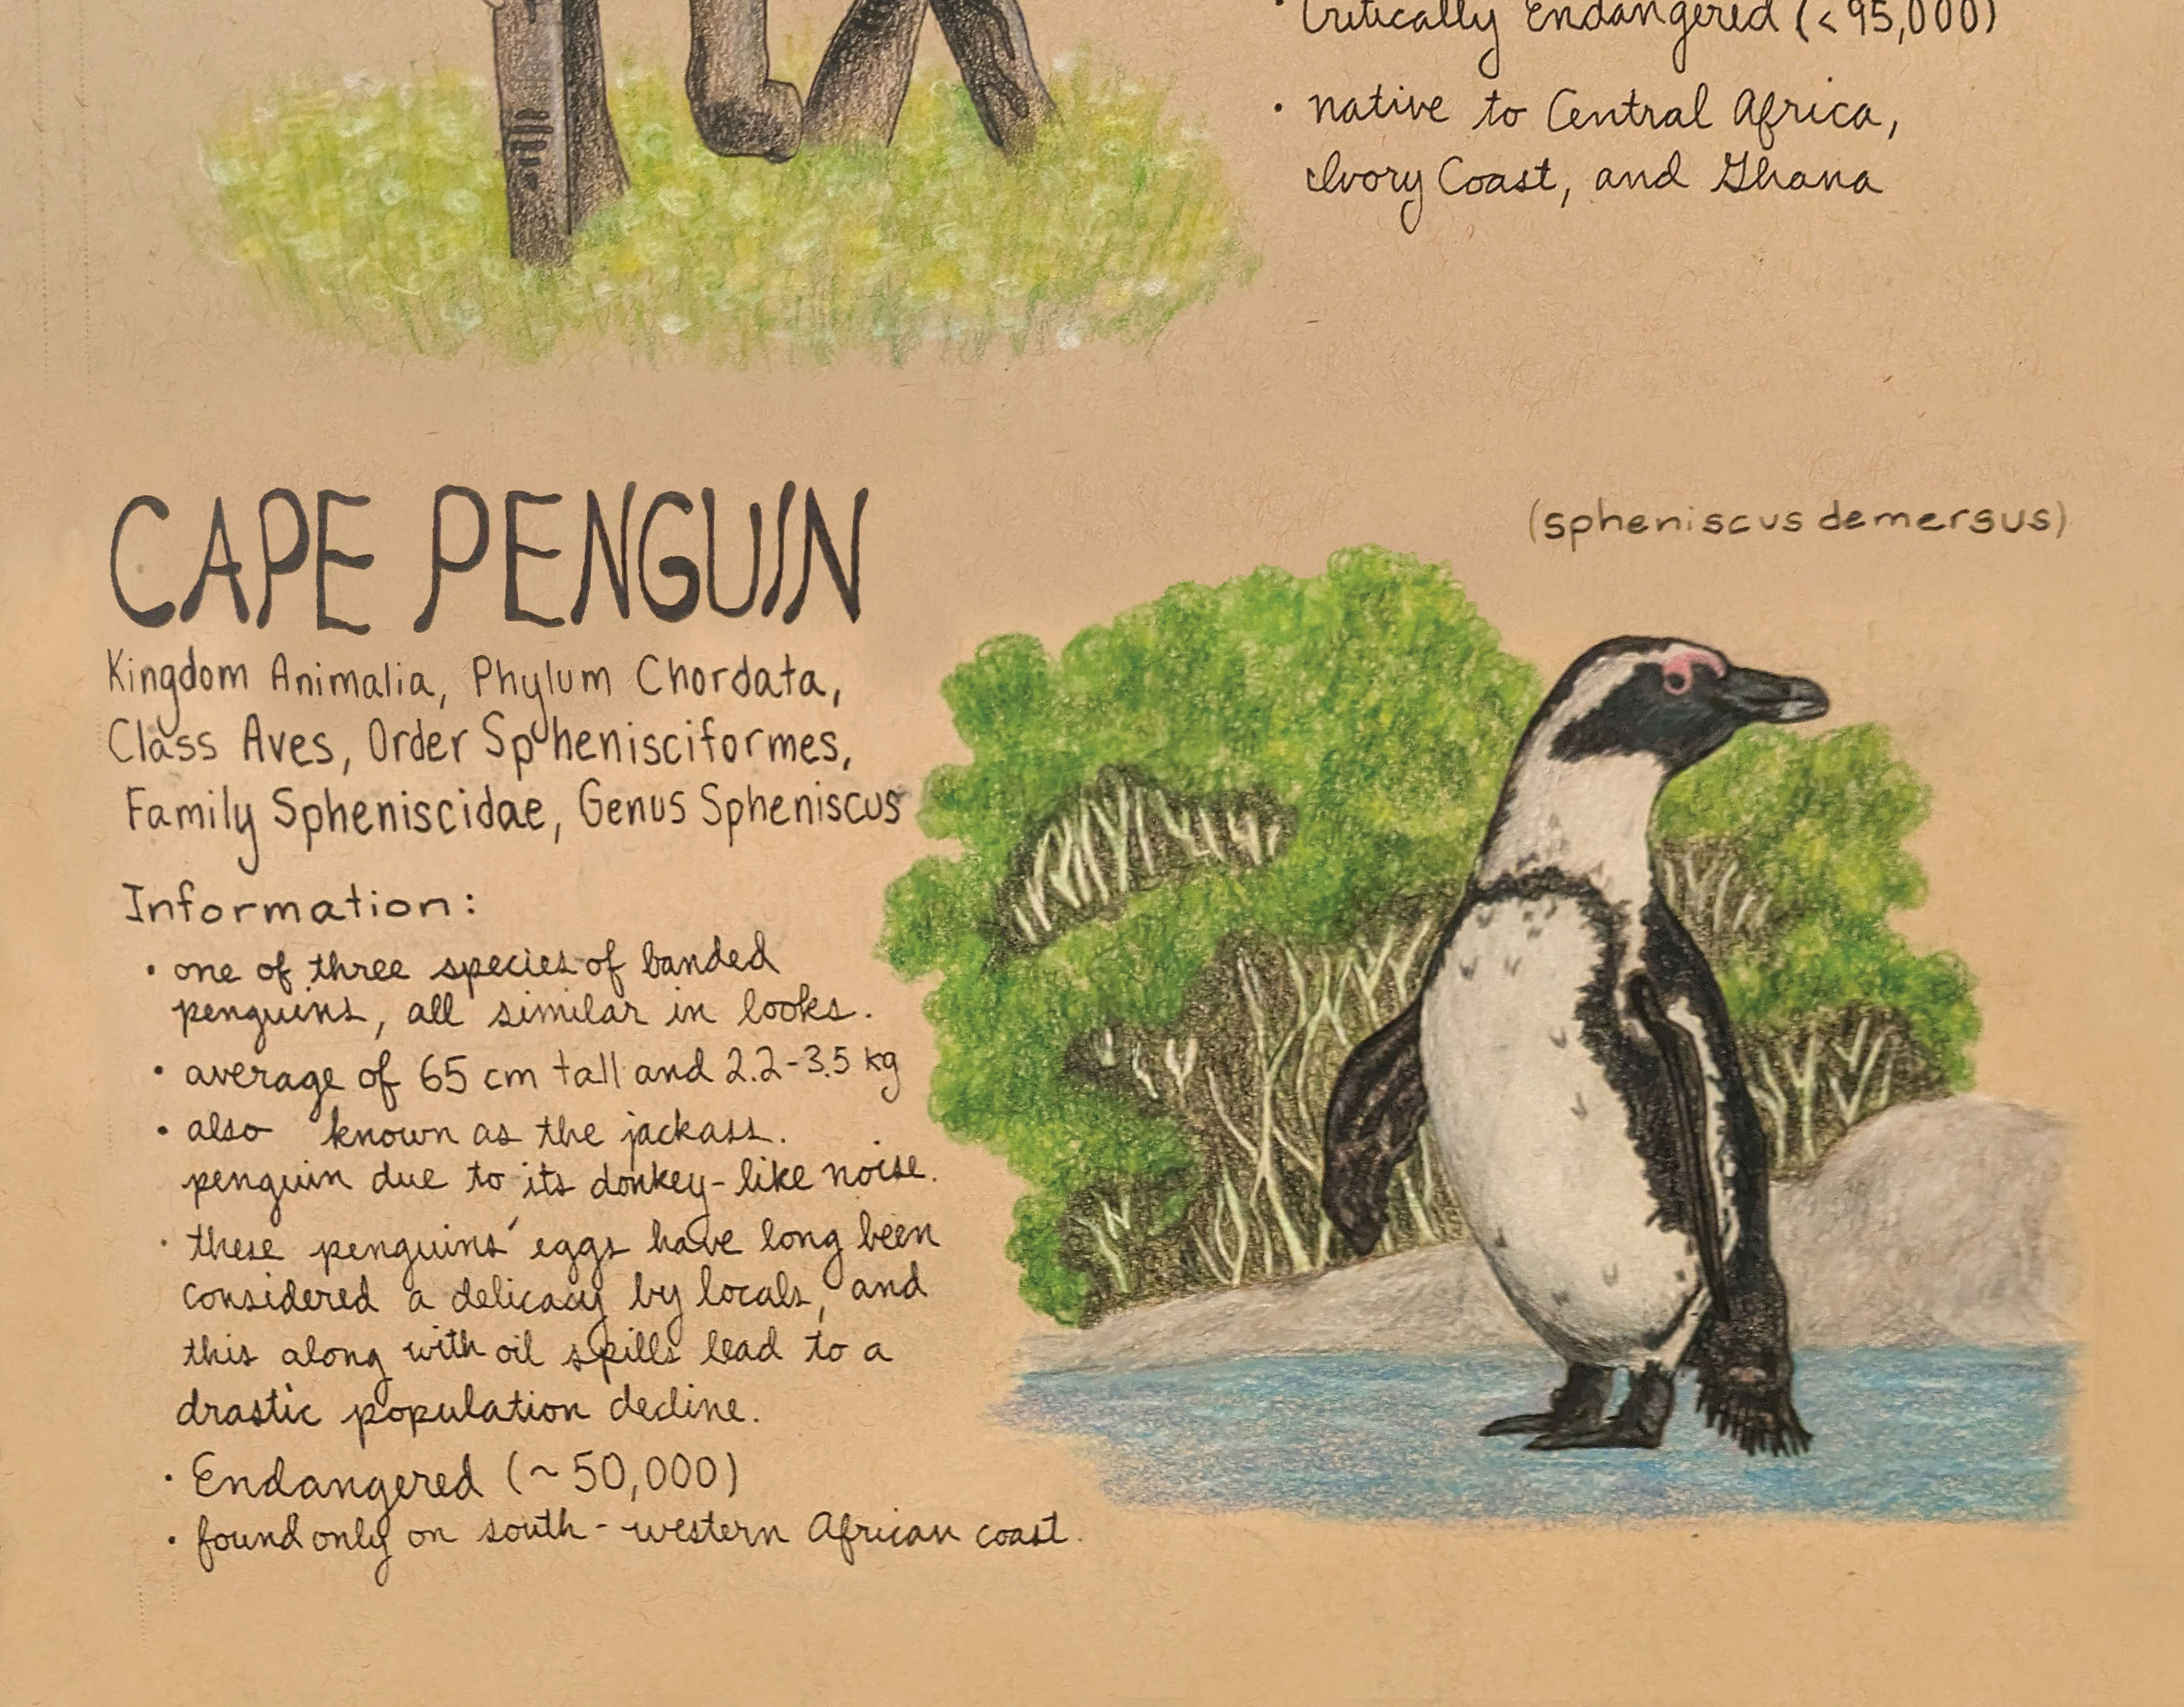 • Critically Endangered (<95,000)
• native to Central Africa,
Ivory Coast, and Ghana
CAPE PENGUIN
(spheniscus demersus)
Kingdom Animalia, Phylum Chordata,
Class Aves, Order Sphenisciformes,
Family Spheniscidae, Genus Spheniscus
Information:
• one of three species of banded
penguins, all similar in looks.
• average of 65 cm tall and 2.2-3.5 kg
• also known as the jackass.
penguin due to its donkey-like noise.
• these penguins' eggs have long been
considered a delicacy by locals, and
this along with oil spills lead to a
drastic population decline.
• Endangered (~50,000)
• found only on south-western African coast.